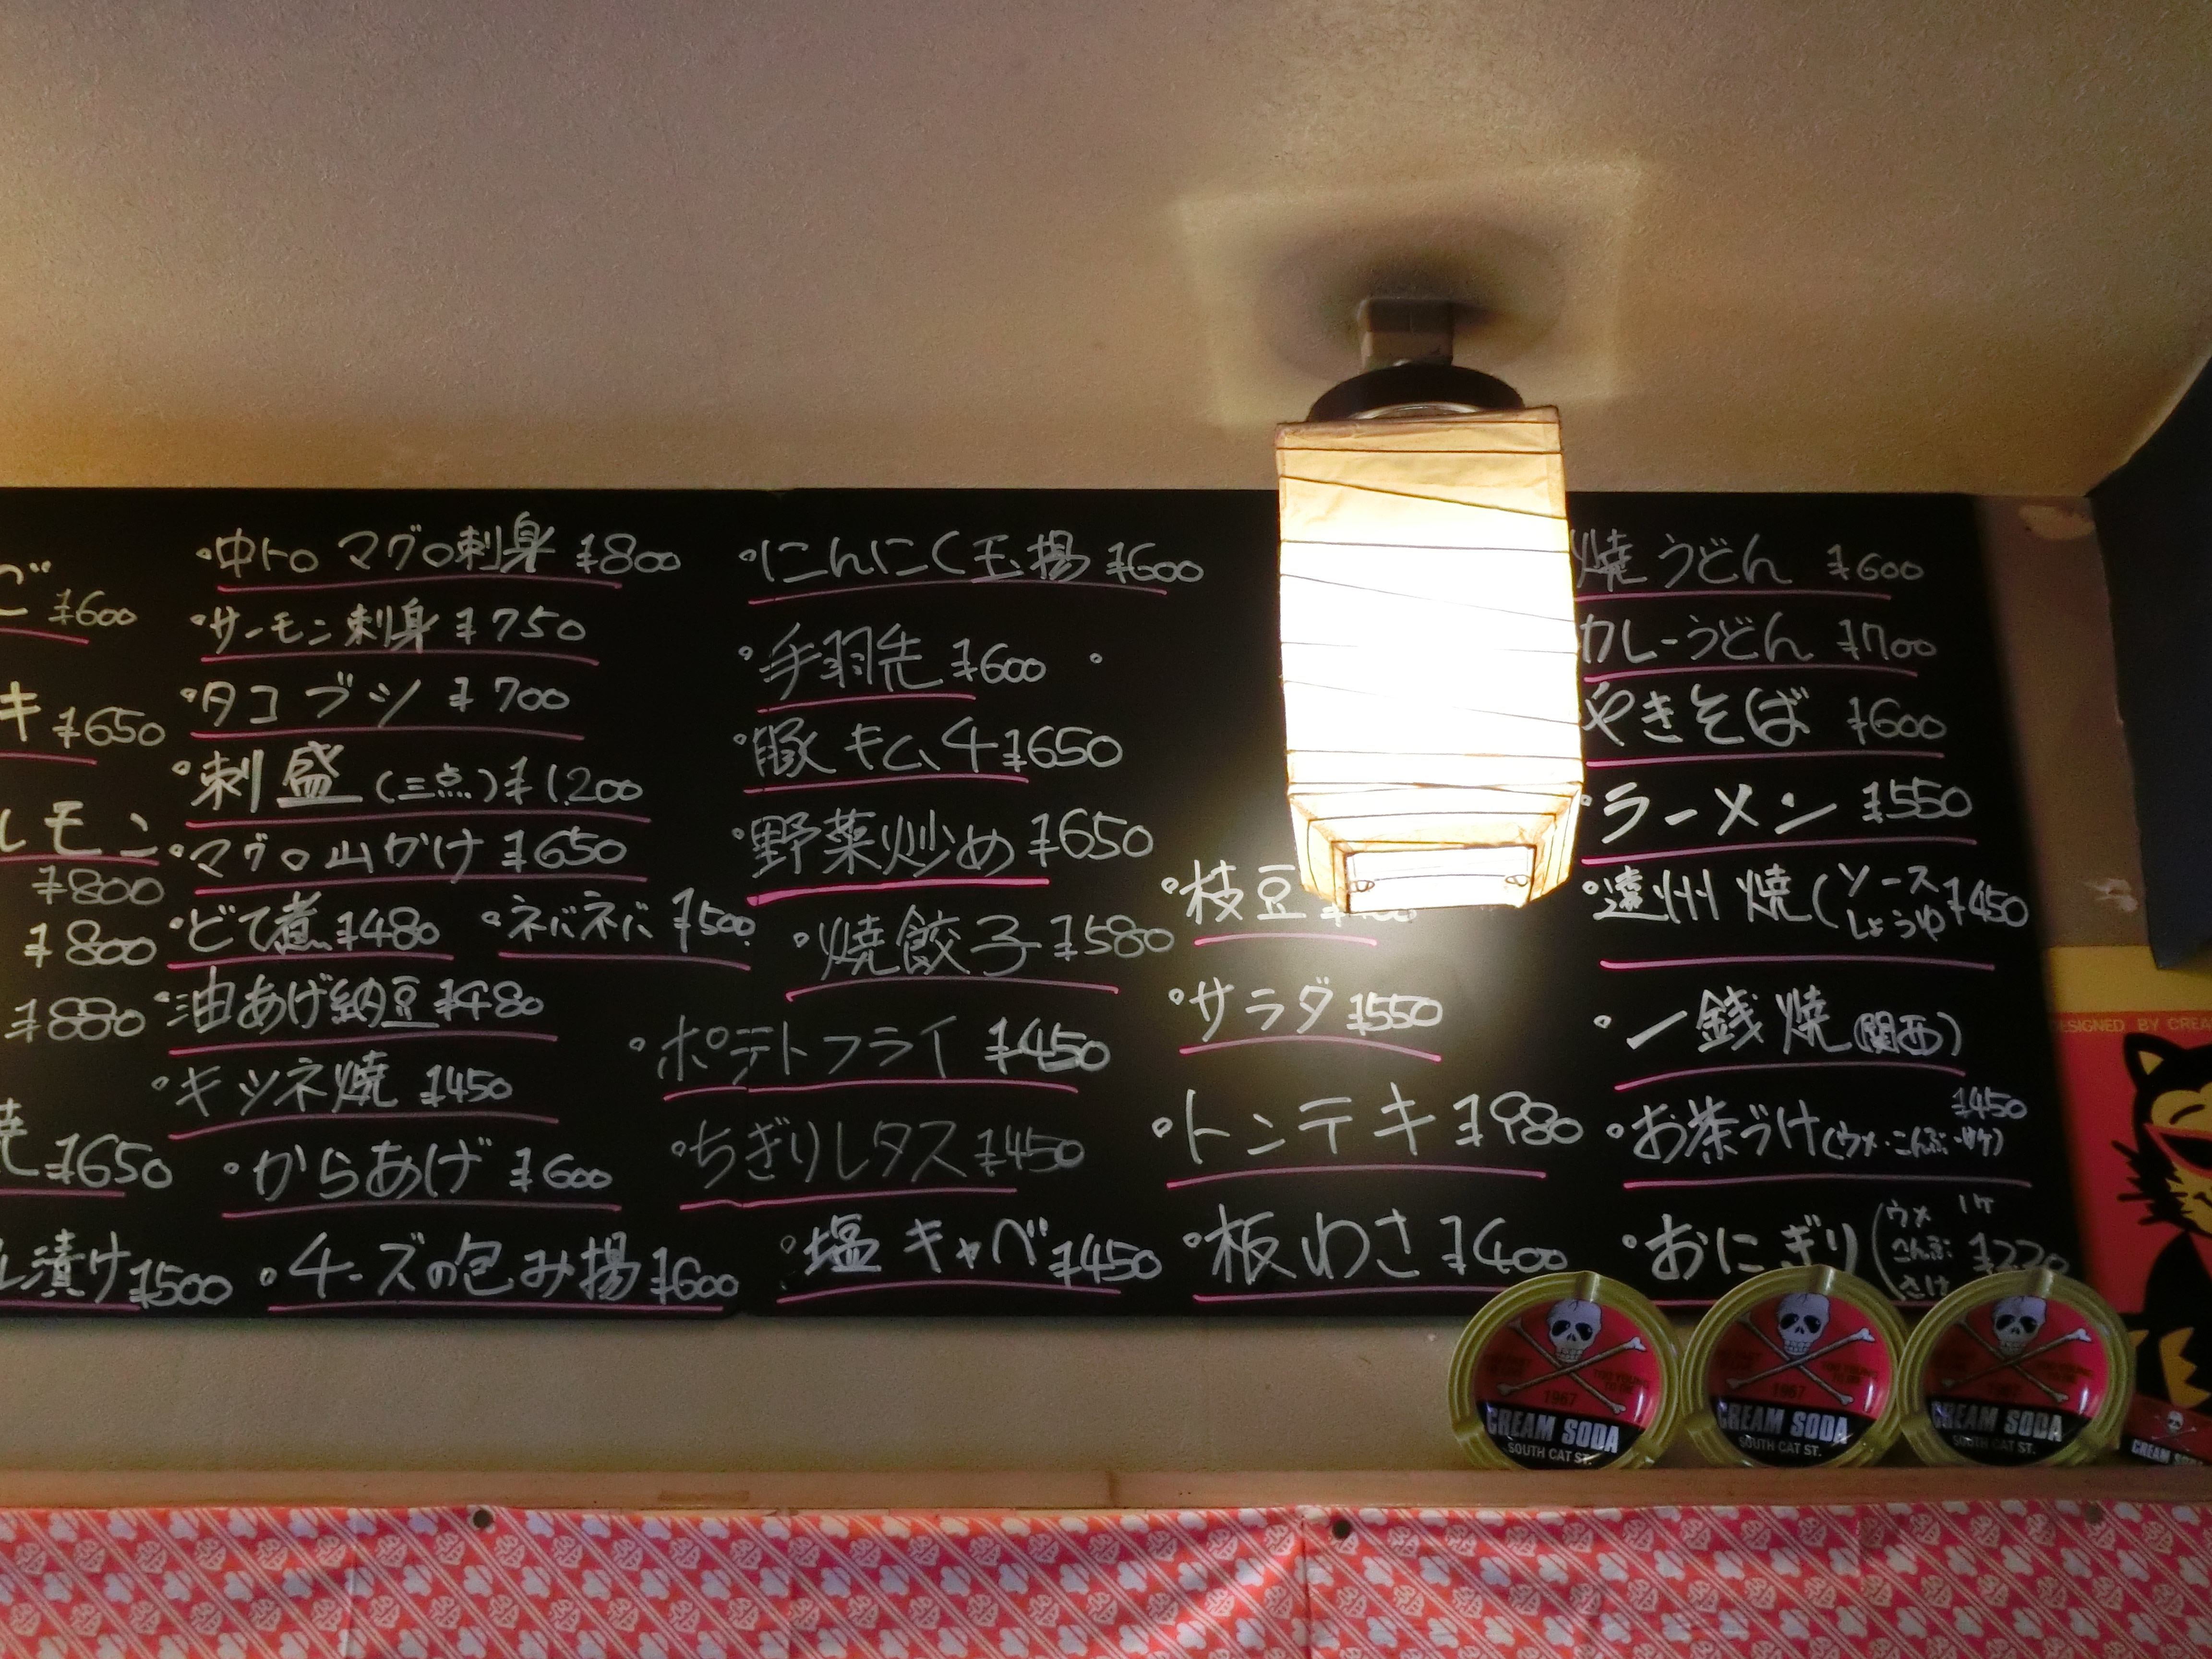 ¥600
キ ¥650
ルモン
¥800
¥800
¥880
焼 ¥650
漬け ¥500
・中トロ マグロ刺身 ¥800
・サーモン刺身 ¥750
・タコブツ ¥700
・刺盛(三点) ¥1,200
・マグロ山かけ ¥650
・どて煮 ¥480
・ネバネバ ¥500
・油あげ納豆 ¥480
・キツネ焼 ¥450
・からあげ ¥600
・チーズの包み揚 ¥600
・にんにく玉揚 ¥600
・手羽先 ¥600 ・
・豚キムチ ¥650
・野菜炒め ¥650
・焼餃子 ¥580
・ポテトフライ ¥450
・ちぎりレタス ¥450
・塩キャベ ¥450
・枝豆
・サラダ ¥550
・トンテキ ¥980
・板わさ ¥400
焼うどん ¥600
カレーうどん ¥700
やきそば ¥600
・ラーメン ¥550
・遠州焼(ソース しょうゆ ¥450
・一銭焼(関西)
・お茶づけ(ウメ・こんぶ・サケ) ¥450
・おにぎり(ウメ こんぶ さけ 1ケ ¥220
DESIGNED BY CREA
1967
CREAM SODA
SOUTH CAT ST.
1967
CREAM SODA
SOUTH CAT ST.
1967
CREAM SODA
SOUTH CAT ST.
CREAM SODA